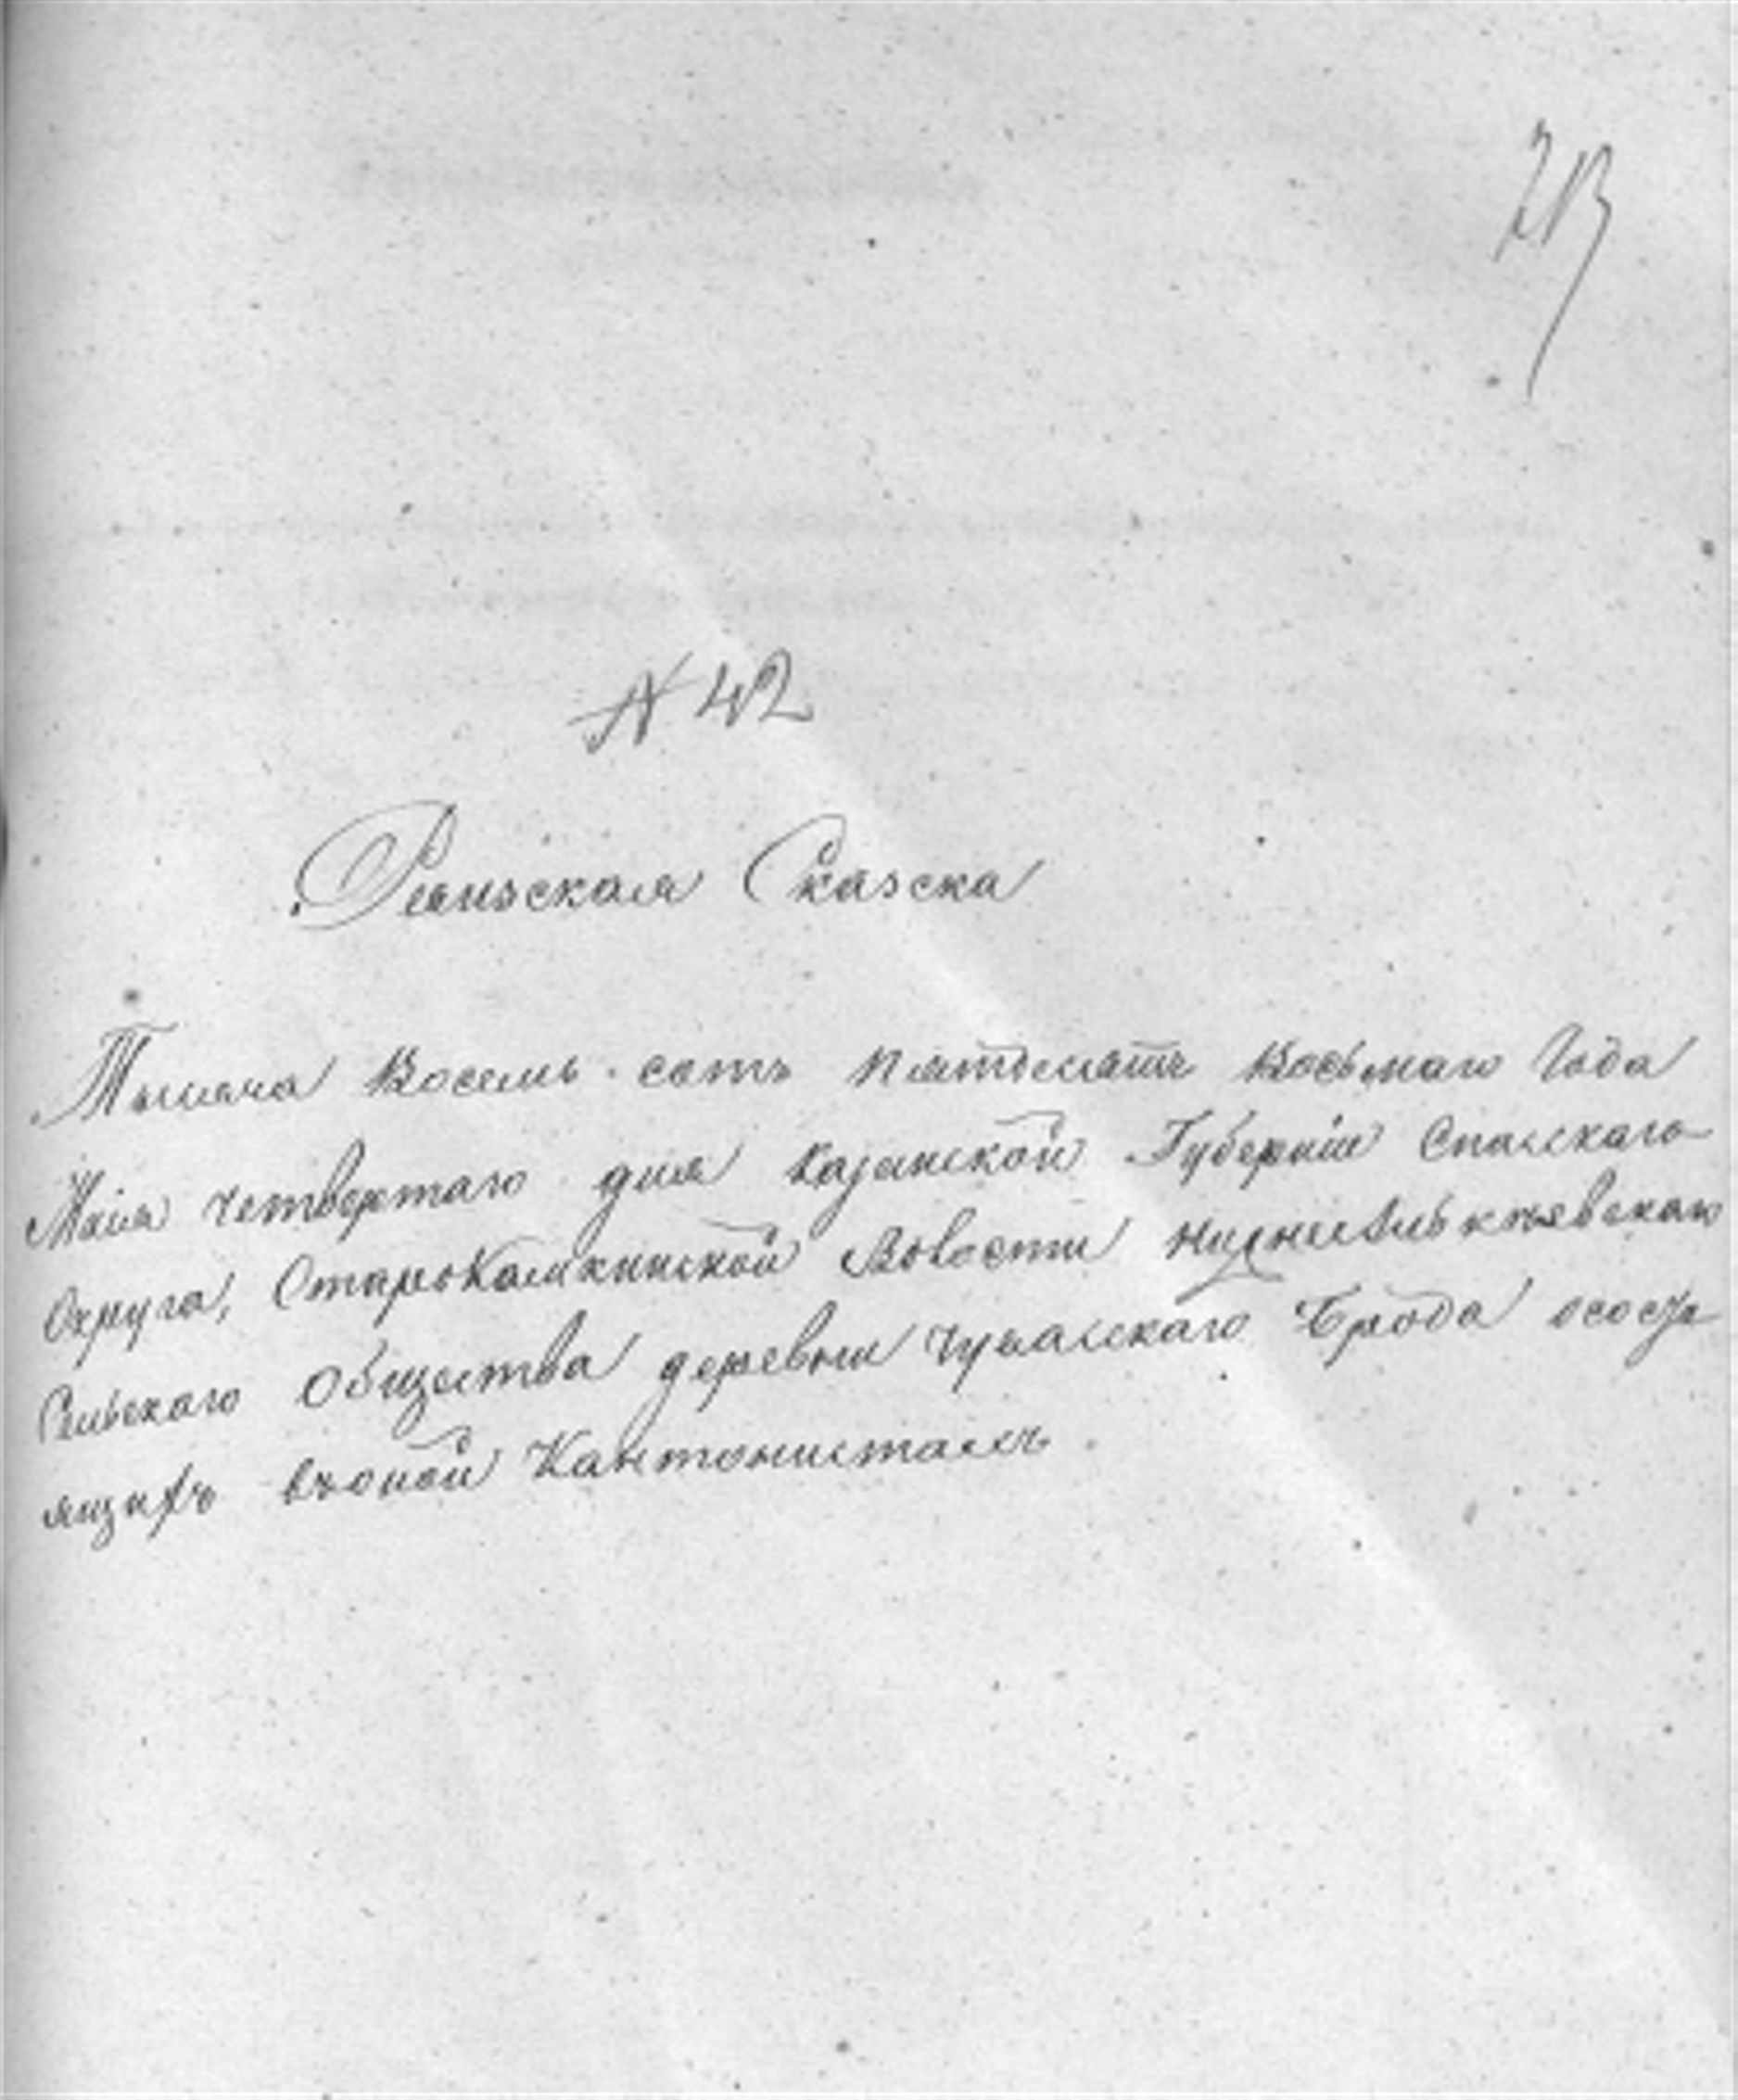 N 42
Ревизская Сказка
Тысяча Восемь сотъ пятдесятъ Восьмаго Года
Маия четвертаго дня Казанской Губерніи Спасскаго
Округа, СтароКамкинской Волости
Сельскаго Общества деревни Чувасскаго Брода осостo
ящихъ въоной Кантонистахъ.